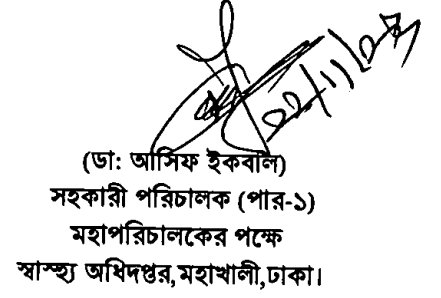 (ডা: আসিফ ইকবাল)
সহকারী পরিচালক (পার-১)
মহাপরিচালকের পক্ষে
স্বাস্থ্য অধিদপ্তর,মহাখালী,ঢাকা।